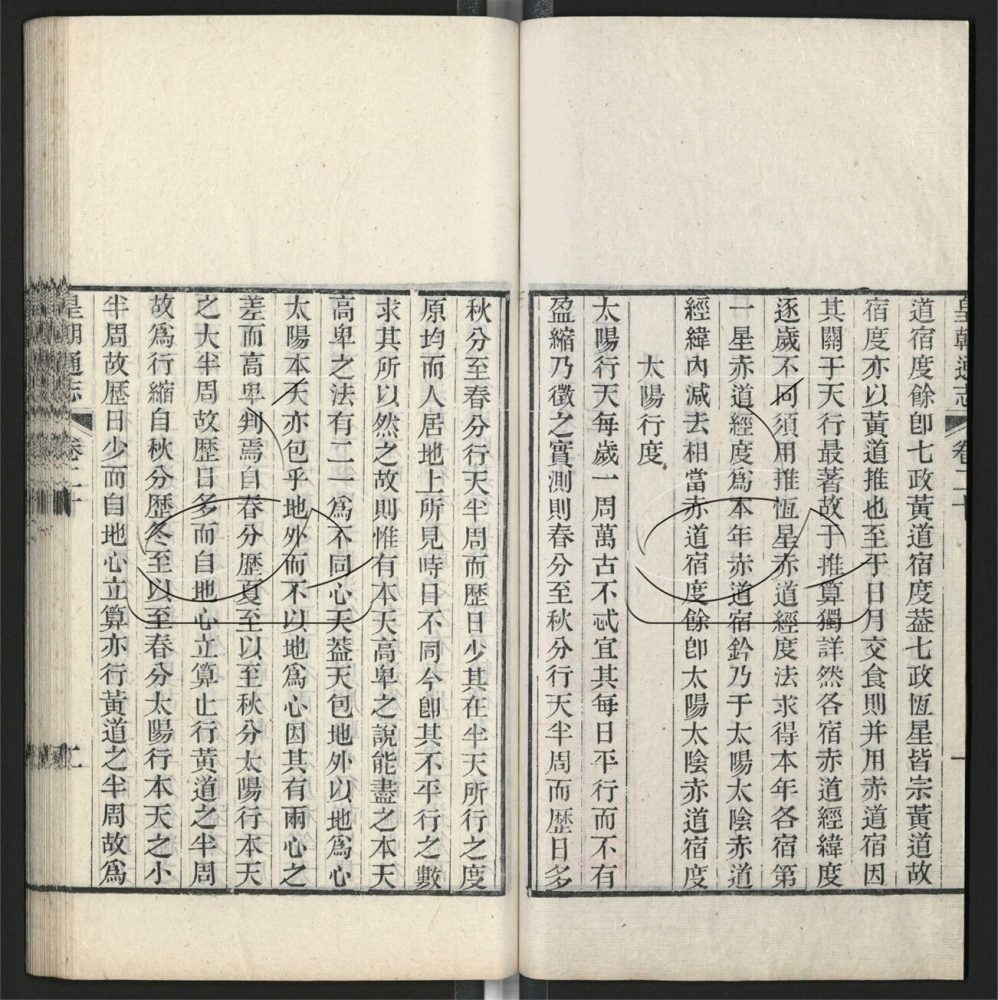 皇朝通志 卷二十 一
道宿度餘卽七政黃道宿度葢七政恆星皆宗黃道故
宿度亦以黃道推也至于日月交食則并用赤道宿因
其關于天行最著故于推算獨詳然各宿赤道經緯度
逐歲不同須用推恆星赤道經度法求得本年各宿第
一星赤道經度爲本年赤道宿鈐乃于太陽太陰赤道
經緯內減去相當赤道宿度餘卽太陽太陰赤道宿度
太陽行度
太陽行天每歲一周萬古不忒宜其每日平行而不有
盈縮乃徵之實測則春分至秋分行天半周而歷日多
秋分至春分行天半周而歷日少其在半天所行之度
原均而人居地上所見時日不同今卽其不平行之數
求其所以然之故則惟有本天高卑之說能盡之本天
高卑之法有二一爲不同心天葢天包地外以地爲心
太陽本天亦包乎地外而不以地爲心因其有兩心之
差而高卑判焉自春分歷夏至以至秋分太陽行本天
之大半周故歷日多而自地心立算止行黃道之半周
故爲行縮自秋分歷冬至以至春分太陽行本天之小
半周故歷日少而自地心立算亦行黃道之半周故爲
皇朝通志 卷二十 二